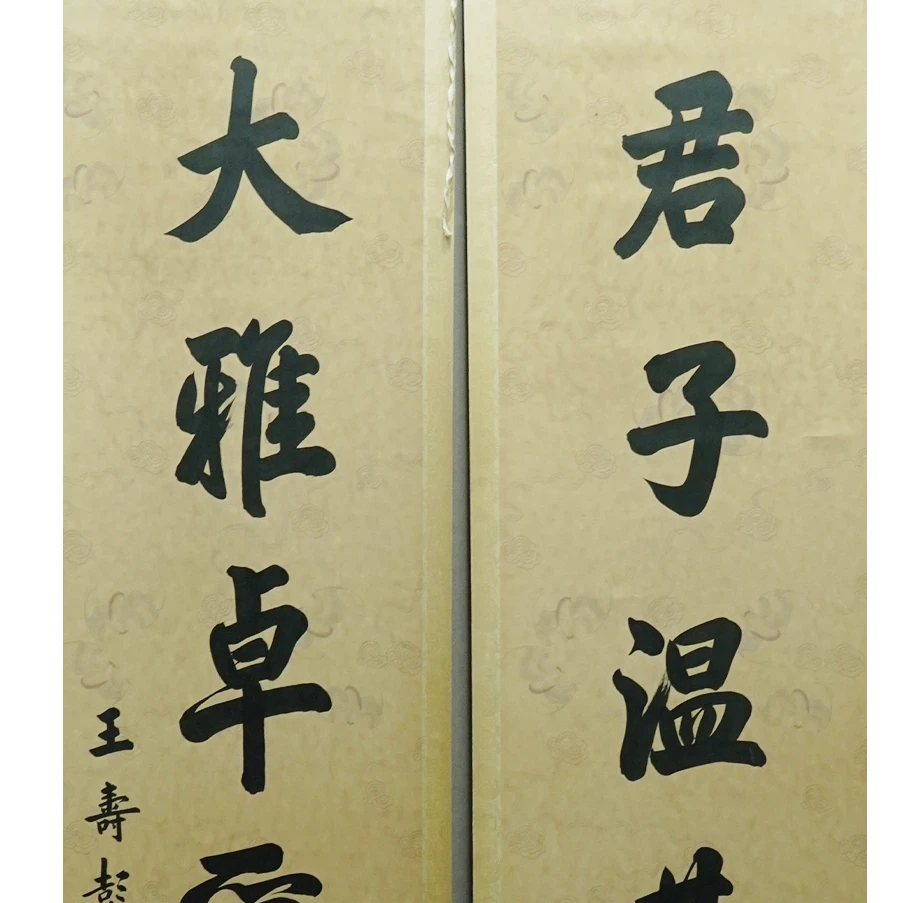 君子温
大雅卓
王壽彭